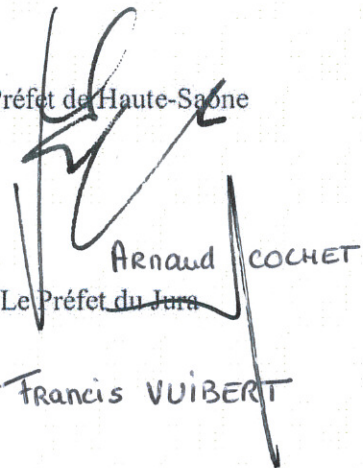 Préfet de Haute-Saône
Arnaud COCHET
Le Préfet du Jura
Francis VUIBERT